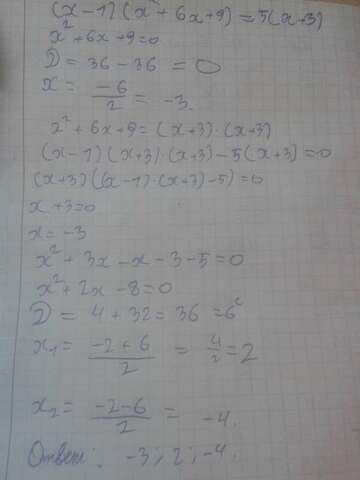 (x-1)(x²+6x+9)=5(x+3)
x²+6x+9=0
D = 36-36 = 0
x = -6/2 = -3.
x²+6x+9=(x+3)·(x+3)
(x-1)(x+3)·(x+3)-5(x+3)=0
(x+3)((x-1)·(x+3)-5)=0
x+3=0
x=-3
x²+3x-x-3-5=0
x²+2x-8=0
D = 4+32=36=6²
x₁= -2+6/2 = 4/2=2
x₂= -2-6/2 = -4.
Ответ: -3; 2; -4.